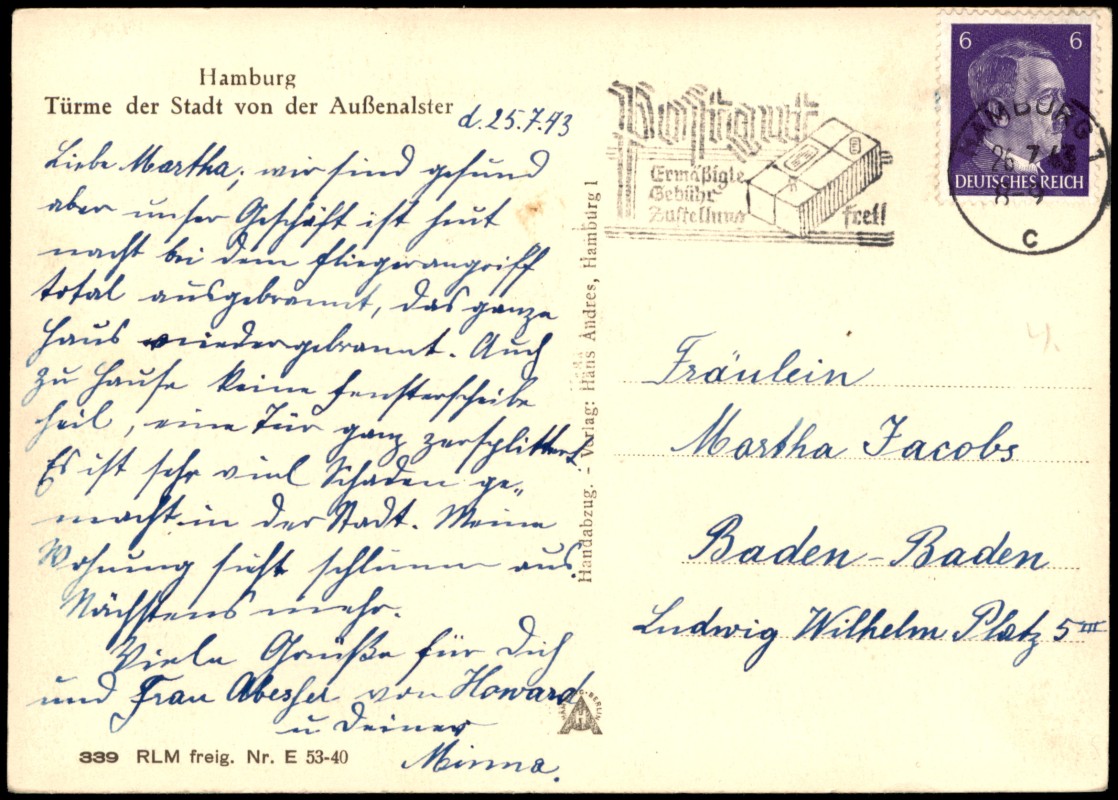 Hamburg
Türme der Stadt von der Außenalster
d. 25.7.43
Liebe Martha, wir sind gesund
aber unser Geschäft ist heut
nacht bei dem Fliegerangriff
total ausgebrannt, das ganze
Haus niedergebrannt. Auch
zu Hause keine Fensterscheibe
heil, eine Tür ganz zersplittert.
Es ist sehr viel Schaden ge-
macht in der Stadt. Meine
Wohnung sieht schlimm aus.
Nächstens mehr.
Viele Grüße für Dich
und Frau von Howard
u Deiner
Minna.
339 RLM freig. Nr. E 53-40
Handabzug. - Verlag: Hans Andres, Hamburg 1
Postgut
Ermäßigte
Gebühr
Zustellung
frei!
6 6
DEUTSCHES REICH
HAMBURG 1
26.7.43
C
4.
Fräulein
Martha Jacobs
Baden-Baden
Ludwig Wilhelm Platz 5 III